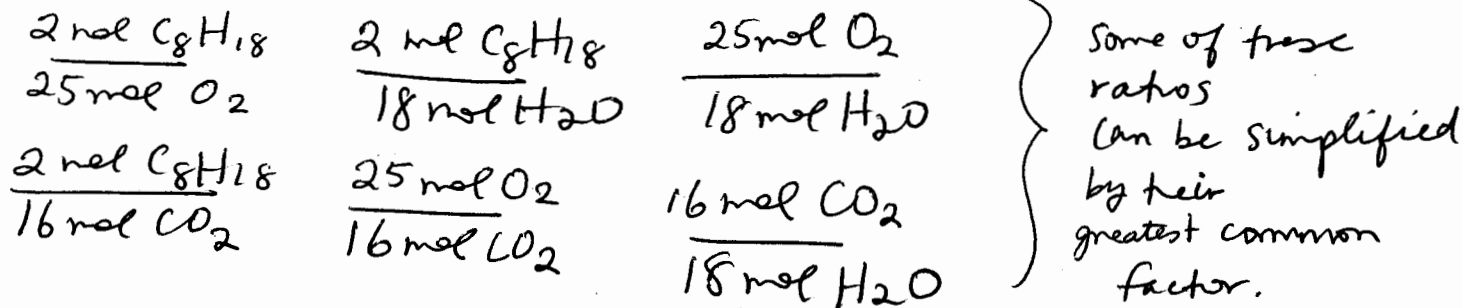 2 mol C₈H₁₈ / 25 mol O₂
2 mol C₈H₁₈ / 18 mol H₂O
25 mol O₂ / 18 mol H₂O
2 mol C₈H₁₈ / 16 mol CO₂
25 mol O₂ / 16 mol CO₂
16 mol CO₂ / 18 mol H₂O
some of these
ratios
can be simplified
by their
greatest common
factor.